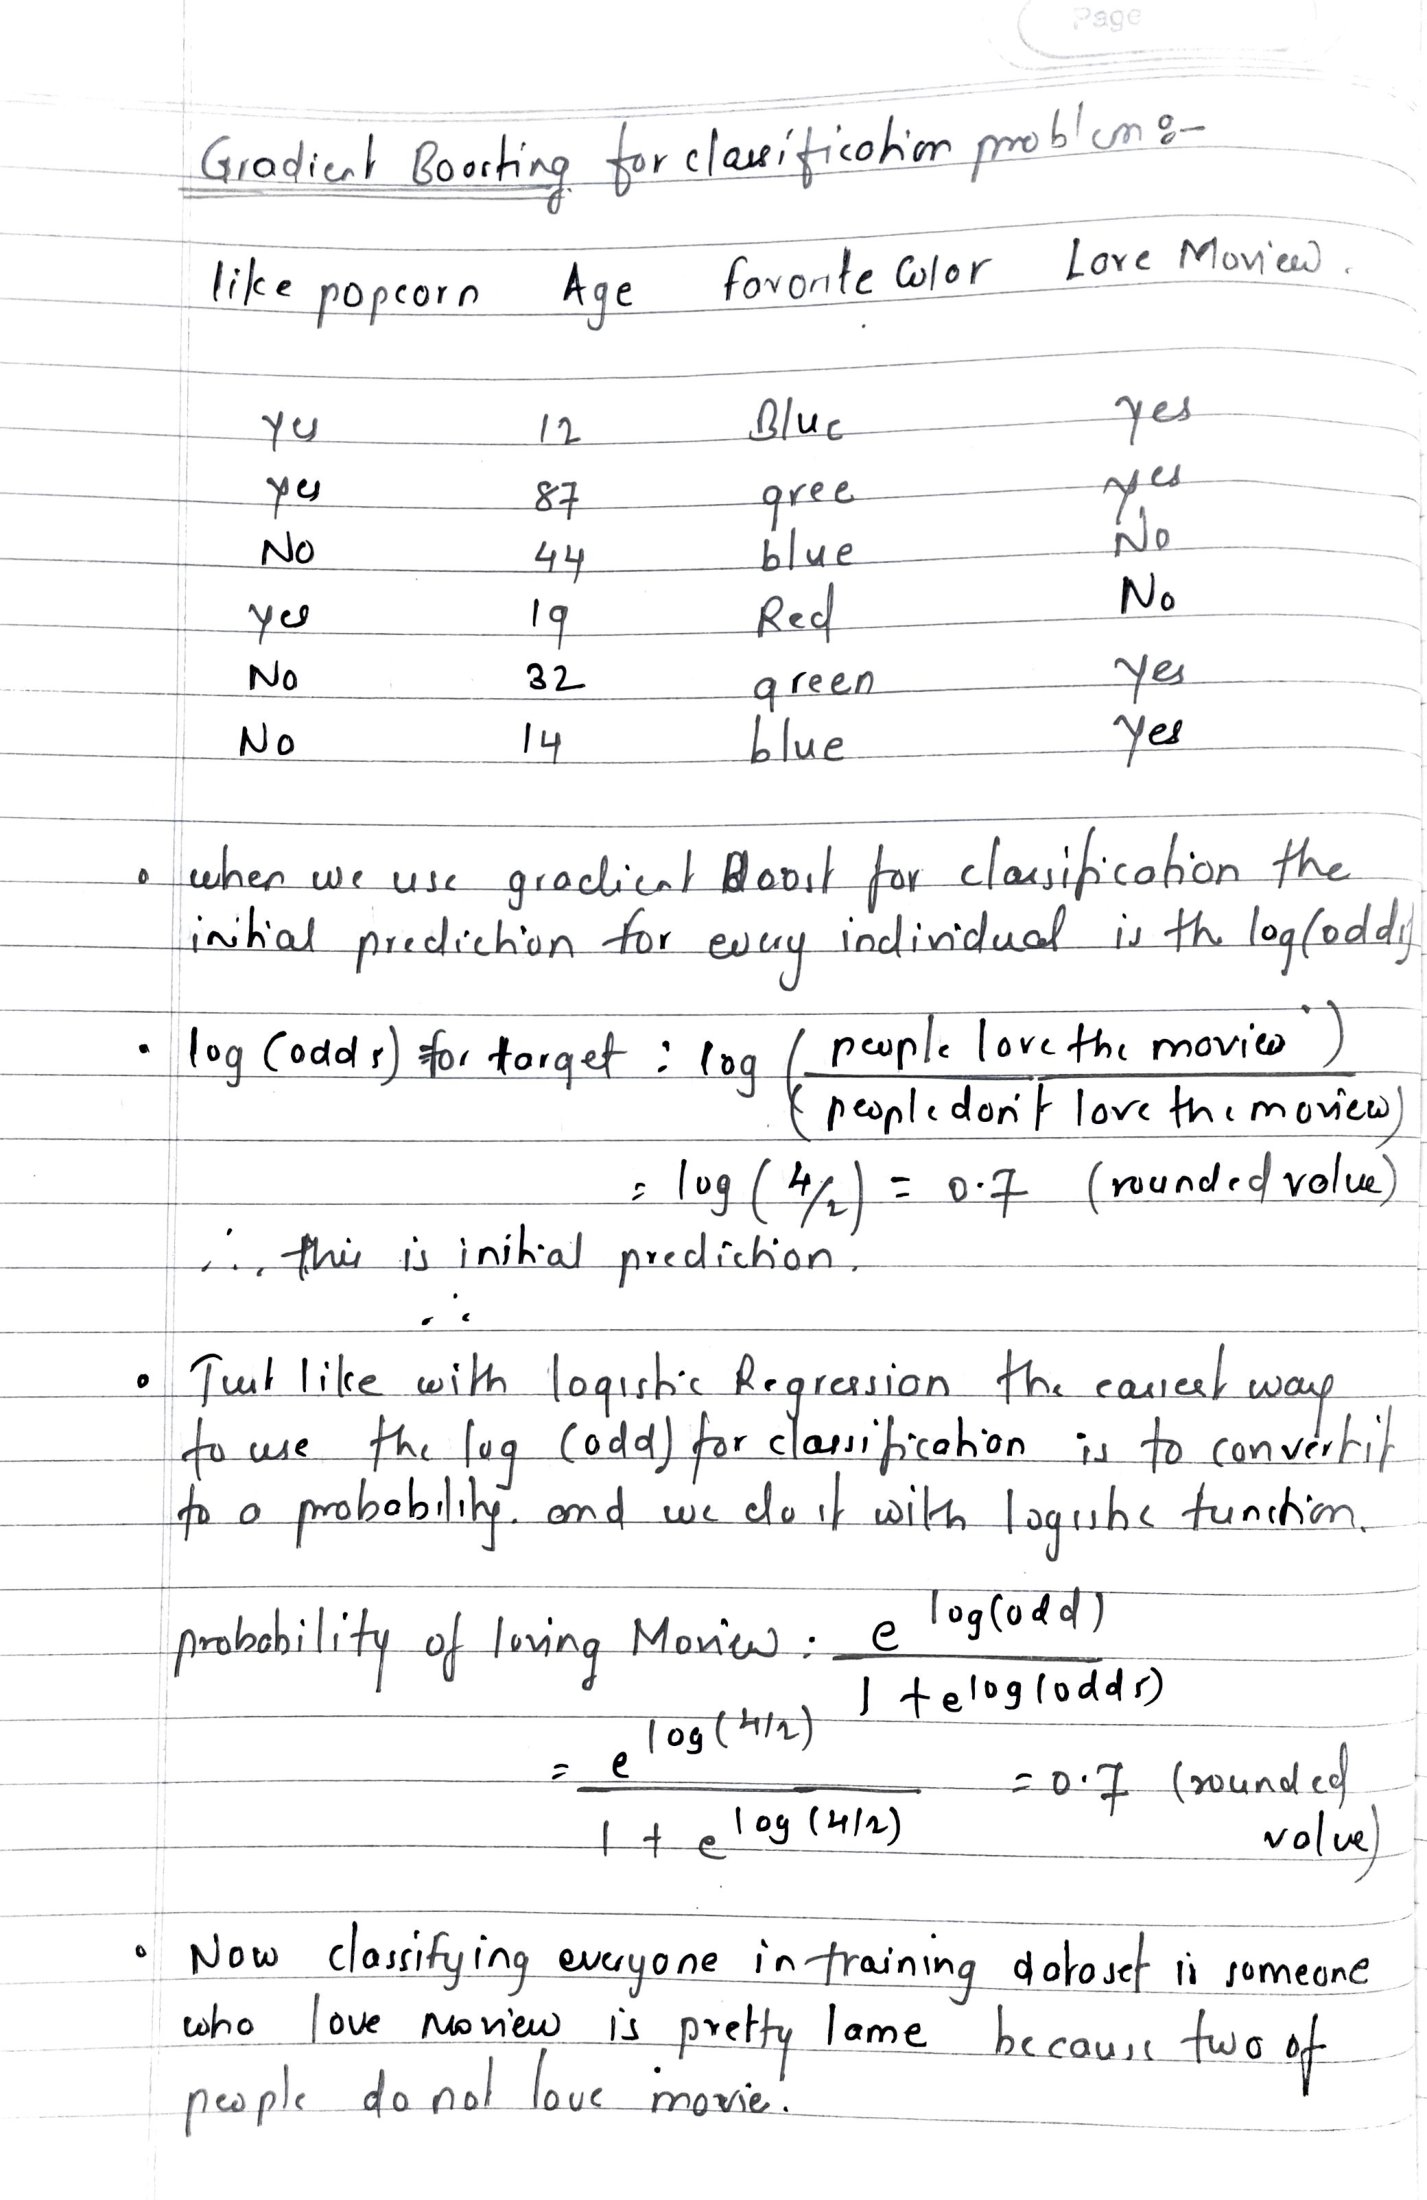 Page
Gradient Boosting for classification problem :-
like popcorn Age favorite Color Love Moview.
yes 12 Blue yes
yes 87 gree yes
No 44 blue No
yes 19 Red No
No 32 green yes
No 14 blue yes
• when we use gradient Boost for classification the
initial prediction for every individual is the log(odds)
• log (odds) for target : log (people love the moview)
(people don't love the moview)
= log (4/2) = 0.7 (rounded value)
∴ this is initial prediction.
∴
• Just like with logistic Regression the easiest way
to use the log (odd) for classification is to convert it
to a probability. and we do it with logistic function.
probability of loving Moview : e log(odd)
1 + e log(odds)
= e log(4/2) = 0.7 (rounded
1 + e log(4/2) value)
• Now classifying everyone in training dataset is someone
who love moview is pretty lame because two of
people do not love movie.